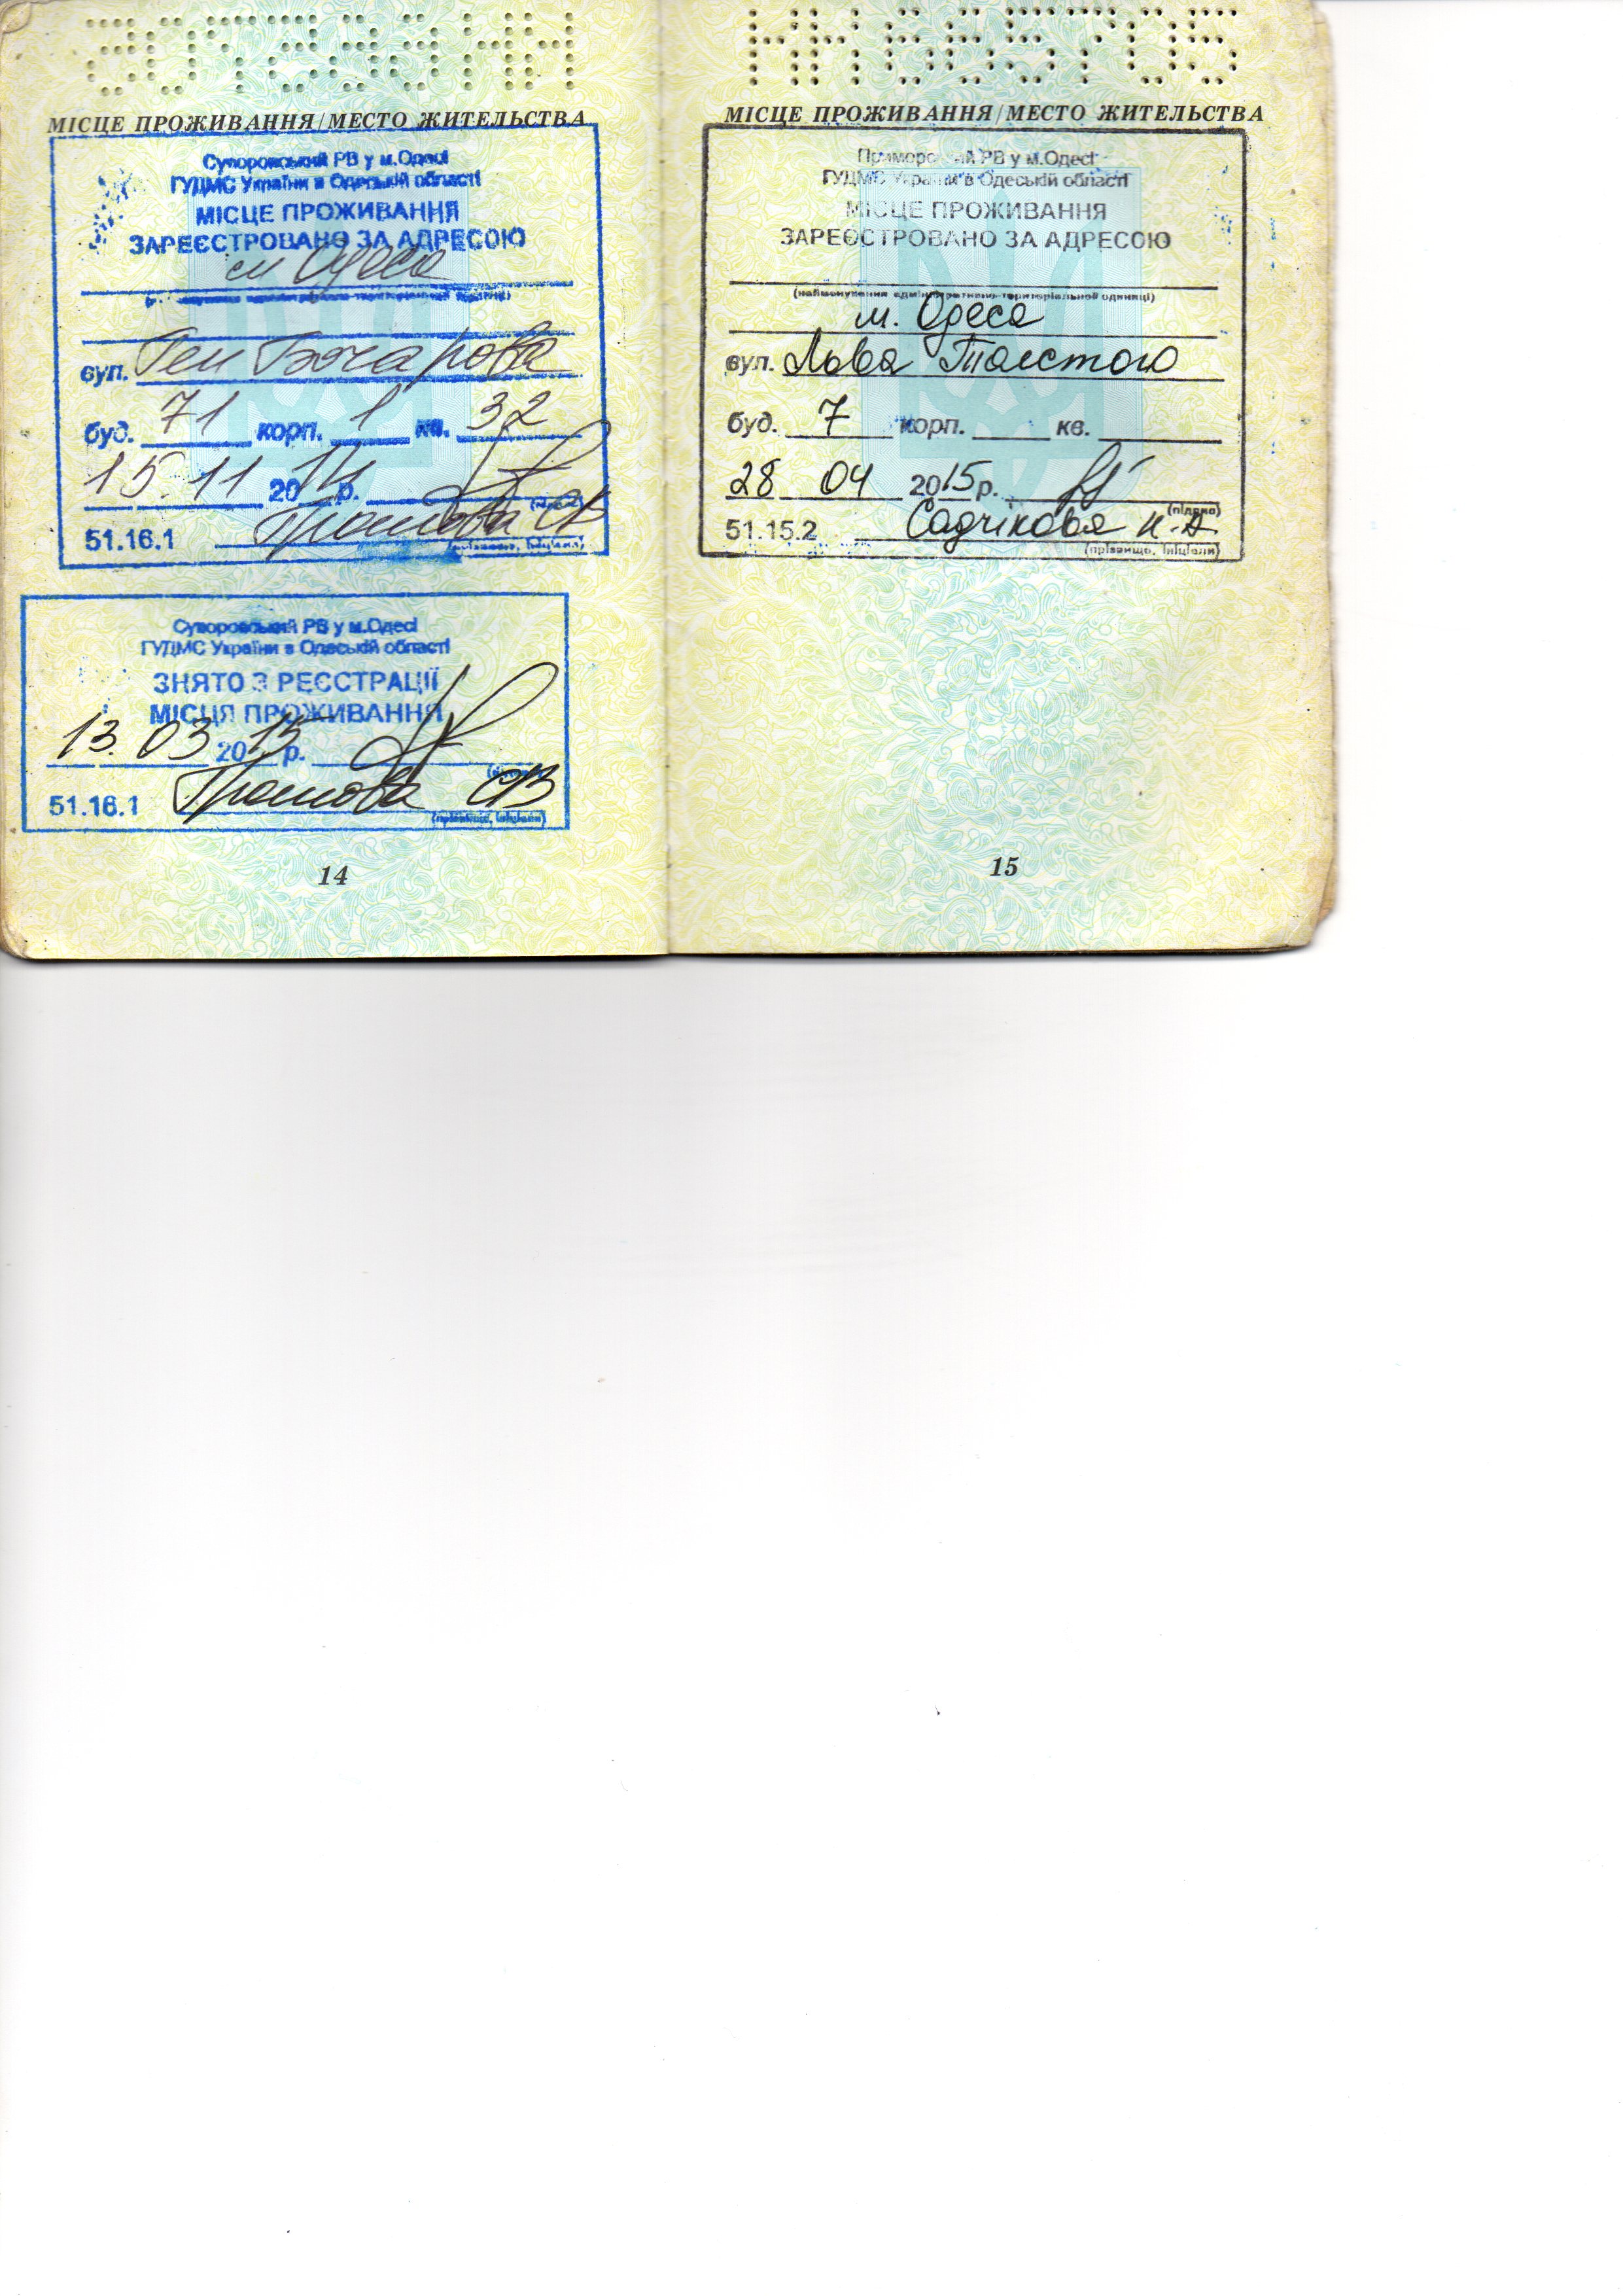 МІСЦЕ ПРОЖИВАННЯ/МЕСТО ЖИТЕЛЬСТВА
Суворовський РВ у м.Одесі
ГУДМС України в Одеській області
МІСЦЕ ПРОЖИВАННЯ
ЗАРЕЄСТРОВАНО ЗА АДРЕСОЮ
м Одеса
вул. Ген Бочарова
буд. 71 корп. 1 кв. 32
15.11 2014 р.
(підпис)
51.16.1
(прізвище, ініціали)
Суворовський РВ у м.Одесі
ГУДМС України в Одеській області
ЗНЯТО З РЕЄСТРАЦІЇ
МІСЦЯ ПРОЖИВАННЯ
13. 03 2015 р.
(підпис)
51.16.1
(прізвище, ініціали)
14
НН665705
МІСЦЕ ПРОЖИВАННЯ/МЕСТО ЖИТЕЛЬСТВА
Приморський РВ у м.Одесі
ГУДМС України в Одеській області
МІСЦЕ ПРОЖИВАННЯ
ЗАРЕЄСТРОВАНО ЗА АДРЕСОЮ
(найменування адміністративно-територіальної одиниці)
м. Одеса
вул. Льва Толстого
буд. 7 корп. кв.
28 04 2015р.
(підпис)
51.15.2 Садчікова Н.А
(прізвище, ініціали)
15